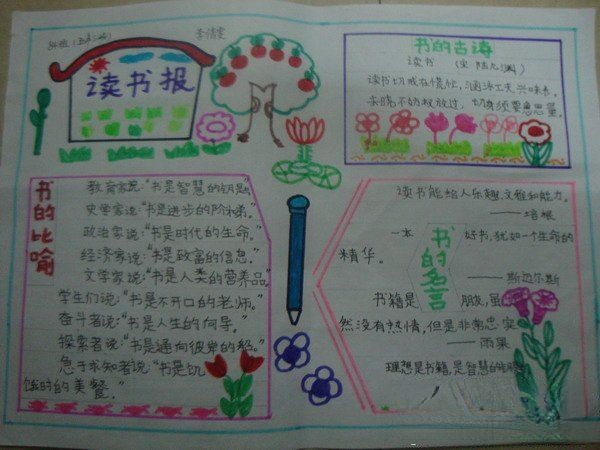 李倩雯
读书报
书的古诗
读书 (宋 陆九渊)
读书切戒在慌忙, 涵泳工夫兴味长,
未晓不妨权放过, 切身须要急思量。
书的比喻
教育家说:“书是智慧的钥匙。”
史学家说:“书是进步的阶梯。”
政治家说:“书是时代的生命。”
经济家说:“书是致富的信息。”
文学家说:“书是人类的营养品。”
学生们说:“书是不开口的老师。”
奋斗者说:“书是人生的向导。”
探索者说:“书是通向彼岸的船。”
急于求知者说:“书是饥
饿时的美餐。”
书的名言
读书能给人乐趣,文雅和能力。
——培根
一本 好书,犹如一个生命的
精华。
——斯迈尔斯
书籍是 朋友,虽
然没有热情,但是非常忠实
——雨果
理想是书籍,是智慧的